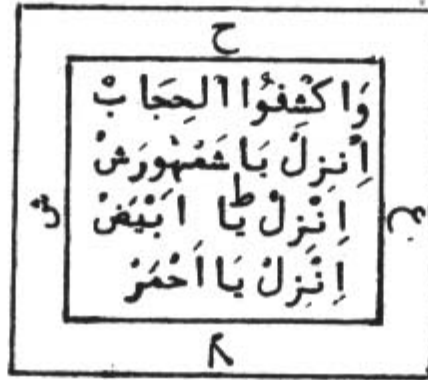 ح
وَاكْشِفُوا الْحِجَابْ
إِنْزِلْ يَا شَمْهُورَشْ
إِنْزِلْ يَا اَبْيَضْ
إِنْزِلْ يَا اَحْمَرْ
ش